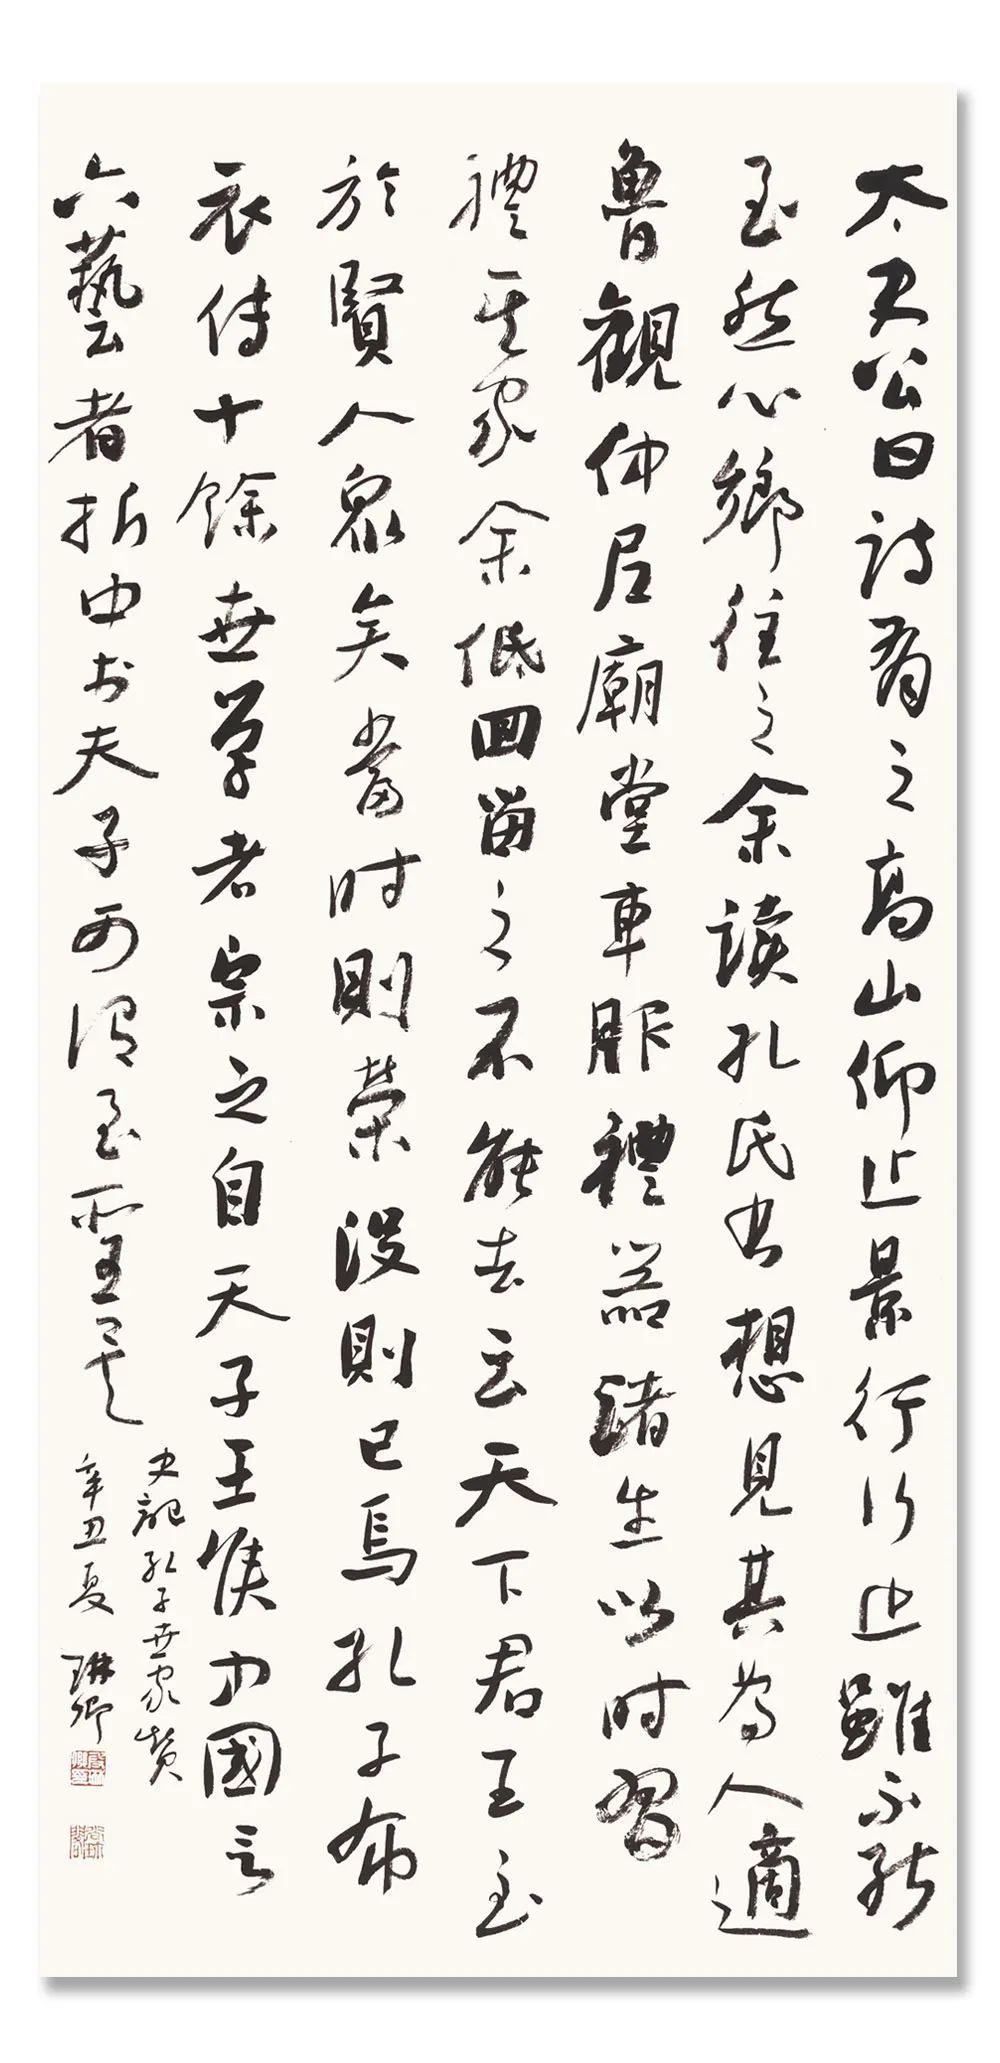 太史公曰詩有之高山仰止景行行止雖不能
至然心鄉往之余讀孔氏書想見其為人適
魯觀仲尼廟堂車服禮器諸生以時習
禮其家余低回留之不能去云天下君王至
於賢人眾矣當時則榮沒則已焉孔子布
衣傳十餘世學者宗之自天子王侯中國言
六藝者折中於夫子可謂至聖矣
史記孔子世家贊
辛丑夏